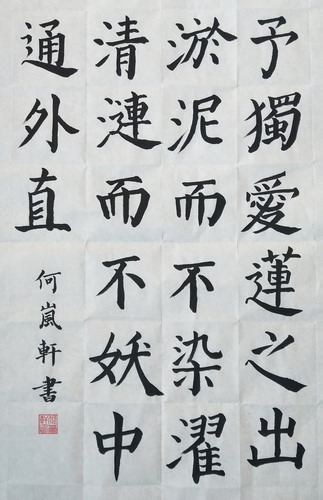 予獨愛蓮之出
淤泥而不染濯
清漣而不妖中
通外直
何嵐軒書